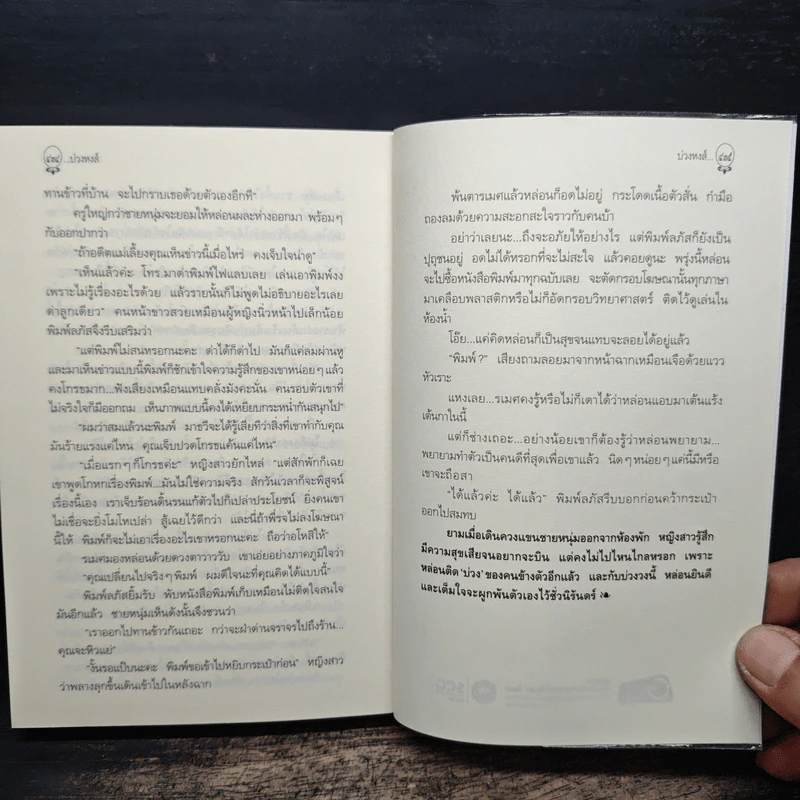 ๔๓๔ ...บ่วงหงส์
ทานข้าวที่บ้าน จะไปกราบเธอด้วยตัวเองอีกที”
ครู่ใหญ่กว่าชายหนุ่มจะยอมให้หล่อนผละห่างออกมา พร้อมๆ
กับออกปากว่า
“ถ้าอดีตแม่เลี้ยงคุณเห็นข่าวนี้เมื่อไหร่ คงเจ็บใจน่าดู”
“เห็นแล้วค่ะ โทร.มาด่าพิมพ์ไฟแลบเลย เล่นเอาพิมพ์งง
เพราะไม่รู้เรื่องอะไรด้วย แล้วรายนั้นก็ไม่พูดไม่อธิบายอะไรเลย
ด่าลูกเดียว” คนหน้าขาวสวยเหมือนผู้หญิงนิ่วหน้าไปเล็กน้อย
พิมพ์ลภัสจึงรีบเสริมว่า
“แต่พิมพ์ไม่สนหรอกนะคะ ด่าได้ก็ด่าไป มันก็แค่ลมผ่านหู
และมาเห็นข่าวแบบนี้พิมพ์ก็ชักเข้าใจความรู้สึกของเขาหน่อยๆ แล้ว
คงโกรธมาก...ฟังเสียงเหมือนแทบคลั่งมังคะนั่น คนรอบตัวเขาที่
ไม่จริงใจก็มีออกถม เห็นภาพแบบนี้คงได้เหยียบกระหน่ำกันสนุกไป”
“ผมว่าสมแล้วนะพิมพ์ มาธวีจะได้รู้เสียทีว่าสิ่งที่เขาทำกับคุณ
มันร้ายแรงแค่ไหน คุณเจ็บปวดโกรธแค้นแค่ไหน”
“เมื่อแรกๆ ก็โกรธค่ะ” หญิงสาวยักไหล่ “แต่สักพักก็เฉย
เขาพูดโกหกเรื่องพิมพ์...มันไม่ใช่ความจริง สักวันเวลาก็จะพิสูจน์
เรื่องนี้เอง เราเจ็บร้อนดิ้นรนแก้ตัวไปก็เปล่าประโยชน์ ยิ่งคนเขา
ไม่เชื่อจะยิ่งโมโหเปล่า สู้เฉยไว้ดีกว่า และนี่ถ้าพี่รจไม่ลงโฆษณา
นี้ให้ พิมพ์ก็จะไม่เอาเรื่องอะไรเขาหรอกนะคะ ถือว่าอโหสิให้”
รเมศมองหล่อนด้วยดวงตาวาววับ เขาเอ่ยอย่างภาคภูมิใจว่า
“คุณเปลี่ยนไปจริงๆ พิมพ์ ผมดีใจนะที่คุณคิดได้แบบนี้”
พิมพ์ลภัสยิ้มรับ พับหนังสือพิมพ์เก็บเหมือนไม่ติดใจสนใจ
มันอีกแล้ว ชายหนุ่มเห็นดังนั้นจึงชวนว่า
“เราออกไปทานข้าวกันเถอะ กว่าจะฝ่าด่านจราจรไปถึงร้าน...
คุณจะหิวแย่”
“งั้นรอแป๊บนะคะ พิมพ์ขอเข้าไปหยิบกระเป๋าก่อน” หญิงสาว
ว่าพลางลุกขึ้นเดินเข้าไปในหลังฉาก
บ่วงหงส์... ๔๓๕
พ้นตารเมศแล้วหล่อนก็อดไม่อยู่ กระโดดเนื้อตัวสั่น กำมือ
ถองลมด้วยความสะอกสะใจราวกับคนบ้า
อย่าว่าเลยนะ...ถึงจะอภัยให้อย่างไร แต่พิมพ์ลภัสก็ยังเป็น
ปุถุชนอยู่ อดไม่ได้หรอกที่จะไม่สะใจ แล้วคอยดูนะ พรุ่งนี้หล่อน
จะไปซื้อหนังสือพิมพ์มาทุกฉบับเลย จะตัดกรอบโฆษณานั้นทุกภาษา
มาเคลือบพลาสติกหรือไม่ก็อัดกรอบวิทยาศาสตร์ ติดไว้ดูเล่นใน
ห้องน้ำ
โอ๊ย...แค่คิดหล่อนก็เป็นสุขจนแทบจะลอยได้อยู่แล้ว
“พิมพ์?” เสียงถามลอยมาจากหน้าฉากเหมือนเจือด้วยแวว
หัวเราะ
แหงเลย...รเมศคงรู้หรือไม่ก็เดาได้ว่าหล่อนแอบมาเต้นแร้ง
เต้นกาในนี้
แต่ก็ช่างเถอะ...อย่างน้อยเขาก็ต้องรู้ว่าหล่อนพยายาม...
พยายามทำตัวเป็นคนดีที่สุดเพื่อเขาแล้ว นิดๆ หน่อยๆ แค่นี้มีหรือ
เขาจะถือสา
“ได้แล้วค่ะ ได้แล้ว” พิมพ์ลภัสรีบบอกก่อนคว้ากระเป๋า
ออกไปสมทบ
ยามเมื่อเดินควงแขนชายหนุ่มออกจากห้องพัก หญิงสาวรู้สึก
มีความสุขเสียจนอยากจะบิน แต่คงไม่ไปไหนไกลหรอก เพราะ
หล่อนติด ‘บ่วง’ ของคนข้างตัวอีกแล้ว และกับบ่วงวงนี้ หล่อนยินดี
และเต็มใจจะผูกพันตัวเองไว้ชั่วนิรันดร์